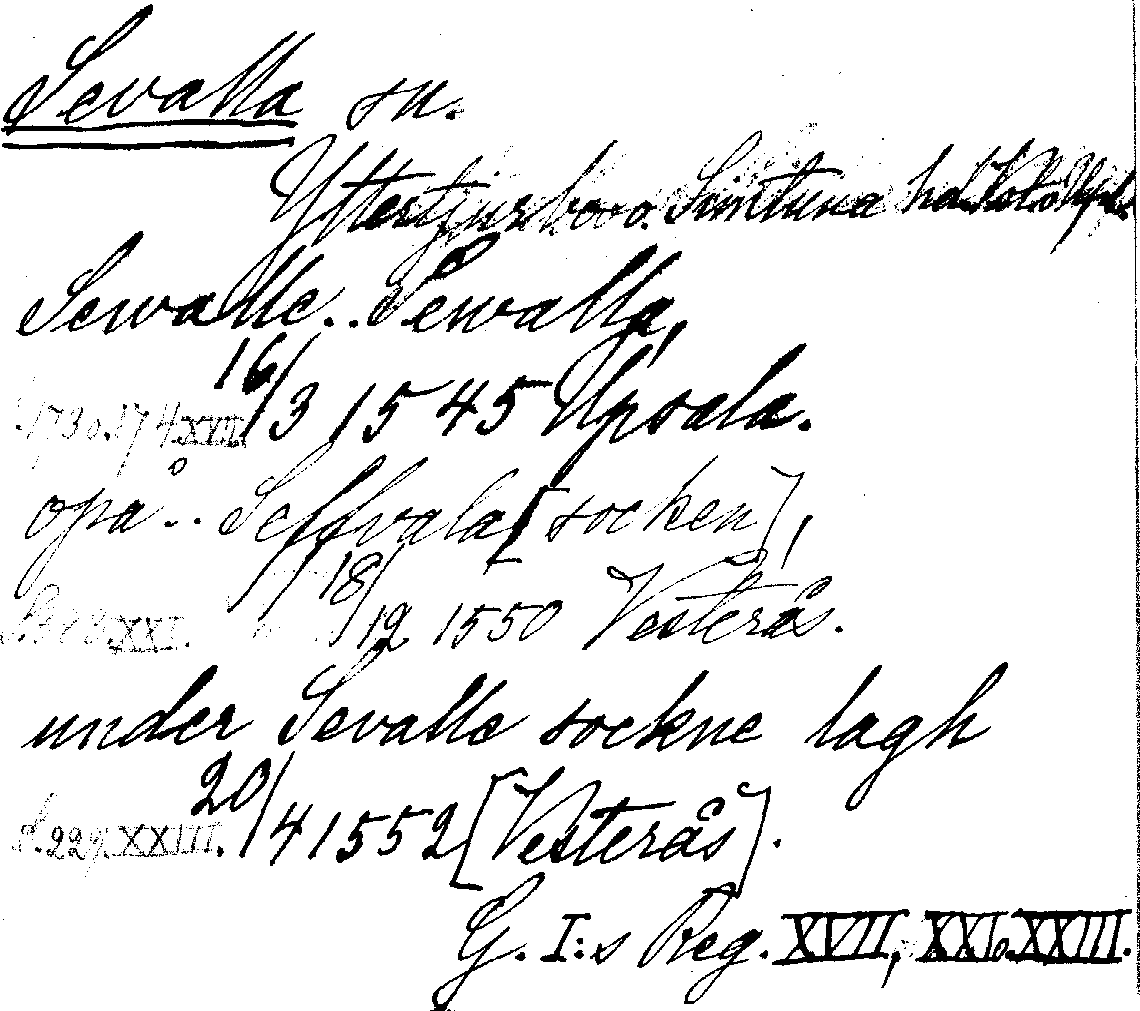 Sevalla sn.
Yttertjurbo o. Simtuna hd
Sewalle .. Sewalla,
16/3 1545 Upsala.
XVII.
opå .. Seffvala [socken],
18/12 1550 Vesterås.
XXI.
under Sevalle sockne lagh
20/4 1552 [Vesterås].
S. 229. XXIII.
G. I:s Reg. XVII, XXI o. XXIII.